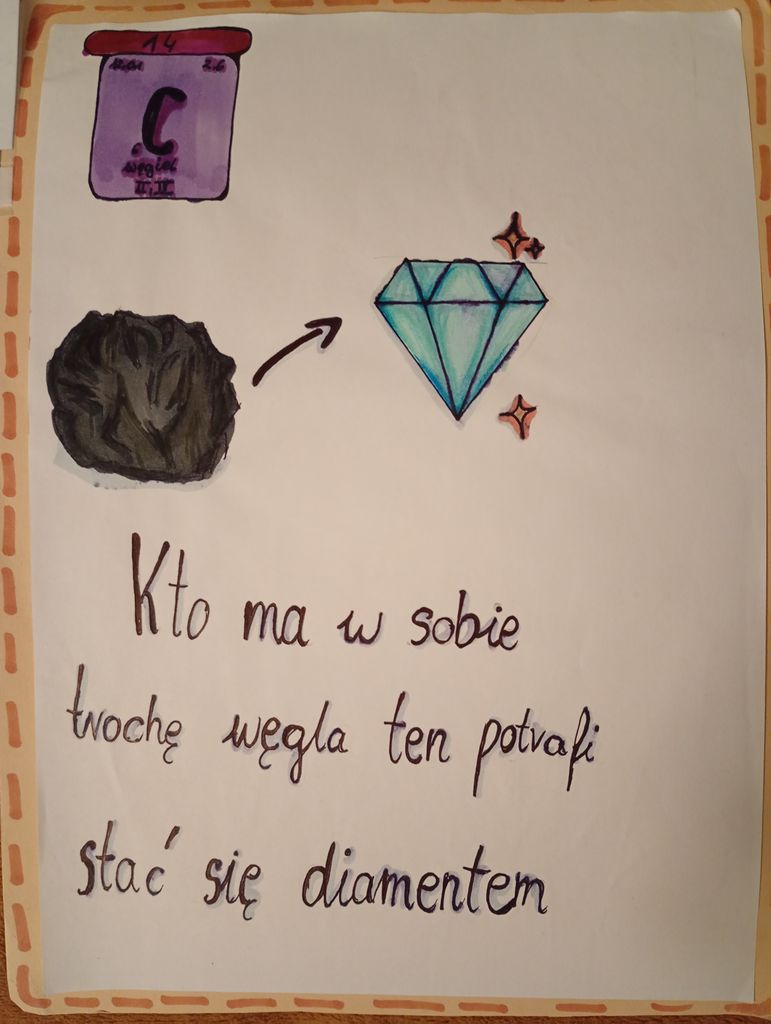 14
12.01 2.6
C
węgiel
II, IV
Kto ma w sobie
trochę węgla ten potrafi
stać się diamentem